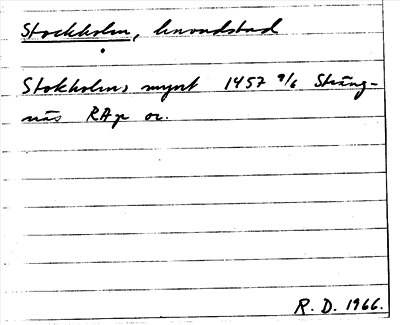 Stockholm, huvudstad
Stokholms mynt 1457 9/6 Sträng-
näs RAp or.
R. D. 1966.